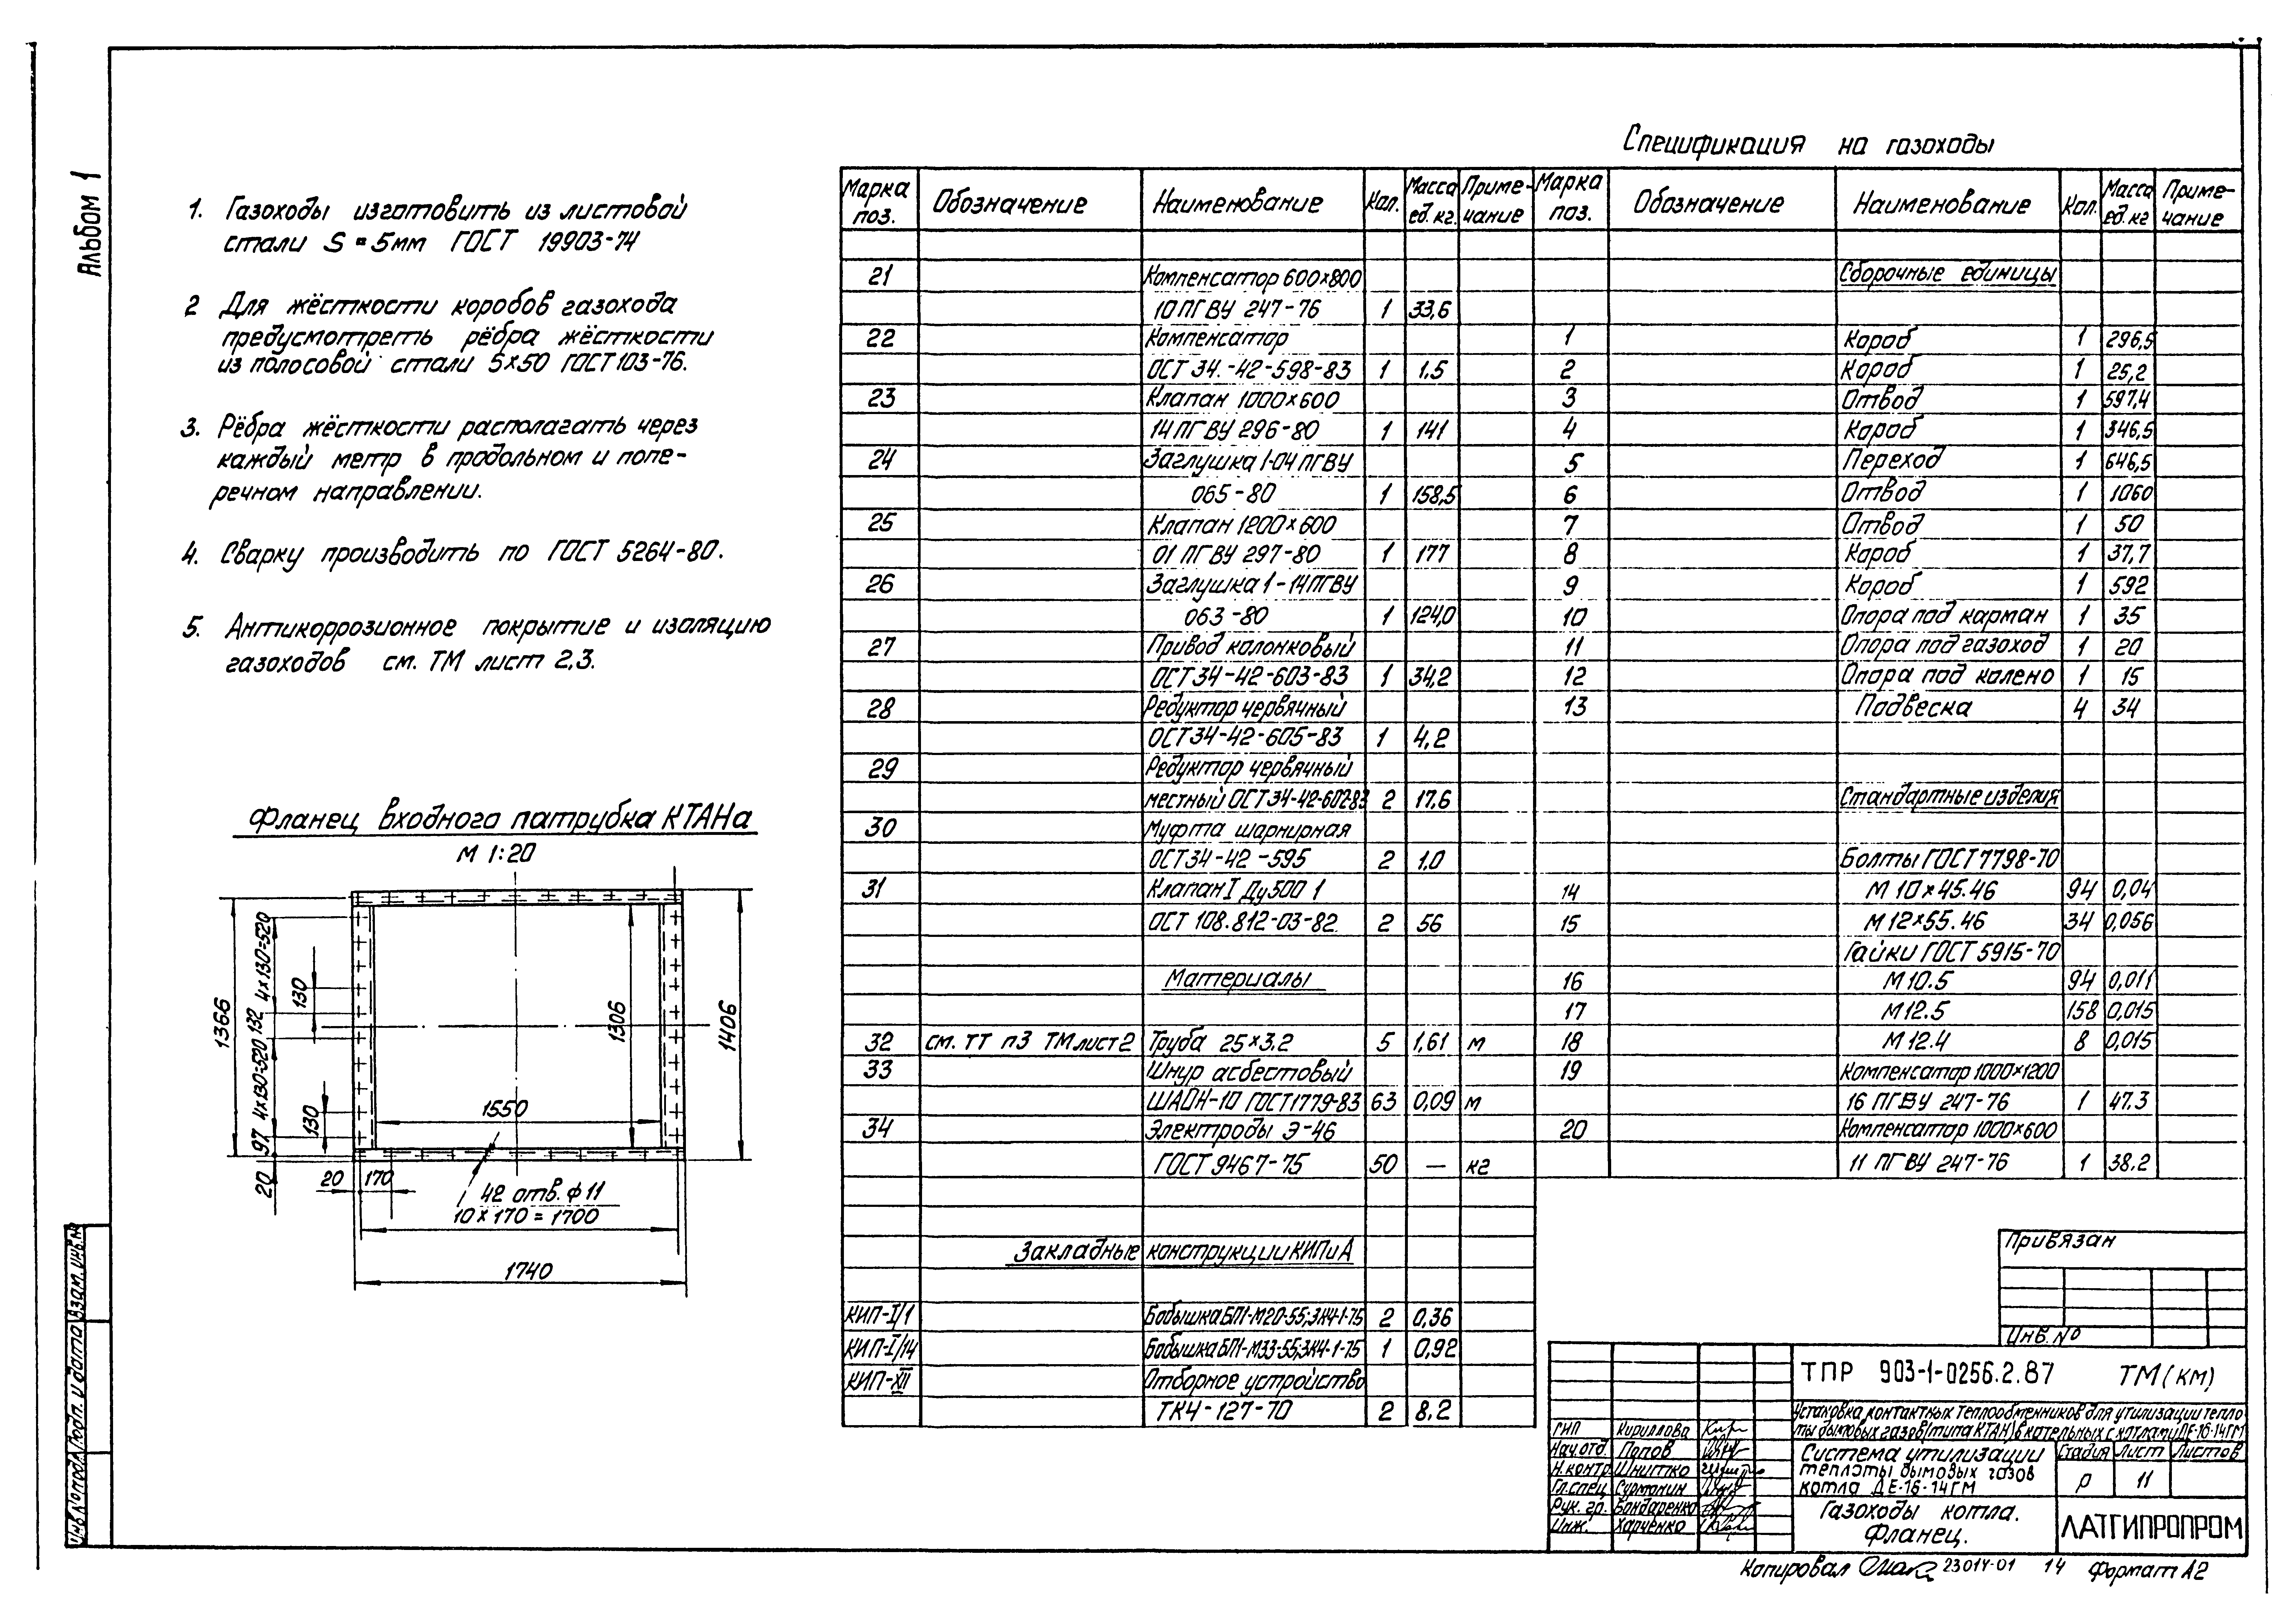 Альбом 1
1. Газоходы изготовить из листовой
стали S = 5мм ГОСТ 19903-74
2 Для жёсткости коробов газохода
предусмотреть рёбра жёсткости
из полосовой стали 5×50 ГОСТ 103-76.
3. Рёбра жёсткости располагать через
каждый метр в продольном и попе-
речном направлении.
4. Сварку производить по ГОСТ 5264-80.
5. Антикоррозионное покрытие и изоляцию
газоходов см. ТМ лист 2,3.
Фланец входного патрубка КТАНа
М 1:20
1366
4×130=520
132
4×130=520
97
20
130
130
1306
1406
1550
20 170
42 отв. ф 11
10 × 170 = 1700
1740
Спецификация на газоходы
Марка поз. Обозначение Наименование Кол. Масса ед. кг. Приме-чание
21 Компенсатор 600×800
10 ПГВУ 247-76 1 33,6
22 Компенсатор
ОСТ 34.-42-598-83 1 1,5
23 Клапан 1000×600
14 ПГВУ 296-80 1 141
24 Заглушка 1-04 ПГВУ
065-80 1 158,5
25 Клапан 1200×600
01 ПГВУ 297-80 1 177
26 Заглушка 1-14 ПГВУ
063-80 1 124,0
27 Привод колонковый
ОСТ 34-42-603-83 1 34,2
28 Редуктор червячный
ОСТ 34-42-605-83 1 4,2
29 Редуктор червячный
местный ОСТ 34-42-602-83 2 17,6
30 Муфта шарнирная
ОСТ 34-42-595 2 1,0
31 Клапан I Ду500 1
ОСТ 108.812-03-82. 2 56
Материалы
32 см. ТТ п3 ТМ лист 2 Труба 25×3,2 5 1,61 м
33 Шнур асбестовый
ШАОН-10 ГОСТ 1779-83 63 0,09 м
34 Электроды Э-46
ГОСТ 9467-75 50 — кг
Закладные конструкции КИПиА
КИП-I/1 Бобышка БП1-М20-55; ЗК4-1-75 2 0,36
КИП-I/14 Бобышка БП1-М33-55; ЗК4-1-75 1 0,92
КИП-XII Отборное устройство
ТК4-127-70 2 8,2
Марка поз. Обозначение Наименование Кол. Масса ед. кг Приме-чание
Сборочные единицы
1 Короб 1 296,5
2 Короб 1 25,2
3 Отвод 1 597,4
4 Короб 1 346,5
5 Переход 1 646,5
6 Отвод 1 1060
7 Отвод 1 50
8 Короб 1 37,7
9 Короб 1 592
10 Опора под карман 1 35
11 Опора под газоход 1 20
12 Опора под колено 1 15
13 Подвеска 4 34
Стандартные изделия
Болты ГОСТ 7798-70
14 М 10×45.46 94 0,04
15 М 12×55.46 34 0,056
Гайки ГОСТ 5915-70
16 М 10.5 94 0,011
17 М 12.5 158 0,015
18 М 12.4 8 0,015
19 Компенсатор 1000×1200
16 ПГВУ 247-76 1 47.3
20 Компенсатор 1000×600
11 ПГВУ 247-76 1 38.2
Привязан
Инв. №
ТПР 903-1-0256.2.87 ТМ (КМ)
Установка контактных теплообменников для утилизации тепло-
ты дымовых газов (типа КТАН) в котельных с котлами ДЕ-16-14ГМ
ГИП Кириллова
Нач.отд. Попов
Н.контр. Шнитко
Гл.спец. Сурманин
Рук. гр. Бондаренко
Инж. Харченко
Система утилизации
теплоты дымовых газов
котла ДЕ-16-14ГМ
Стадия Лист Листов
Р 11
Газоходы котла.
Фланец.
ЛАТГИПРОПРОМ
Копировал 23014-01 14 Формат А2
Инв.№ подл. Подп. и дата Взам. инв.№